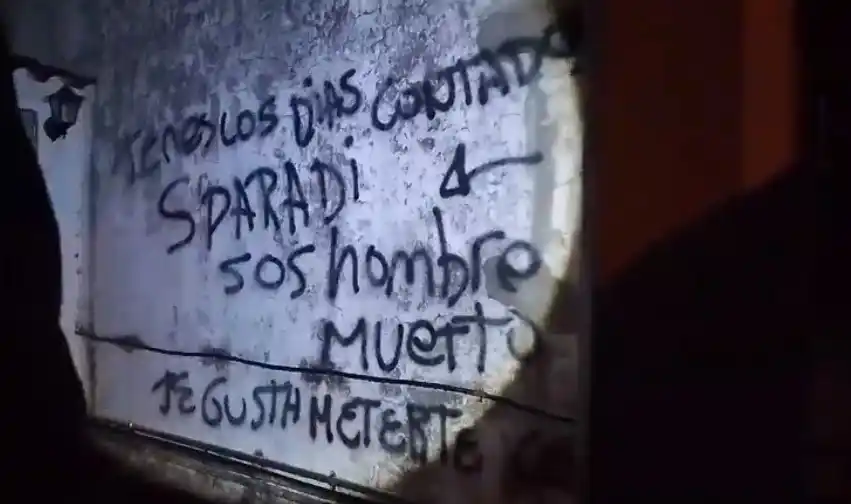 TENES LOS DIAS CONTADO
SPARADI
SOS hombre
MUERTO
TE GUSTA METERTE